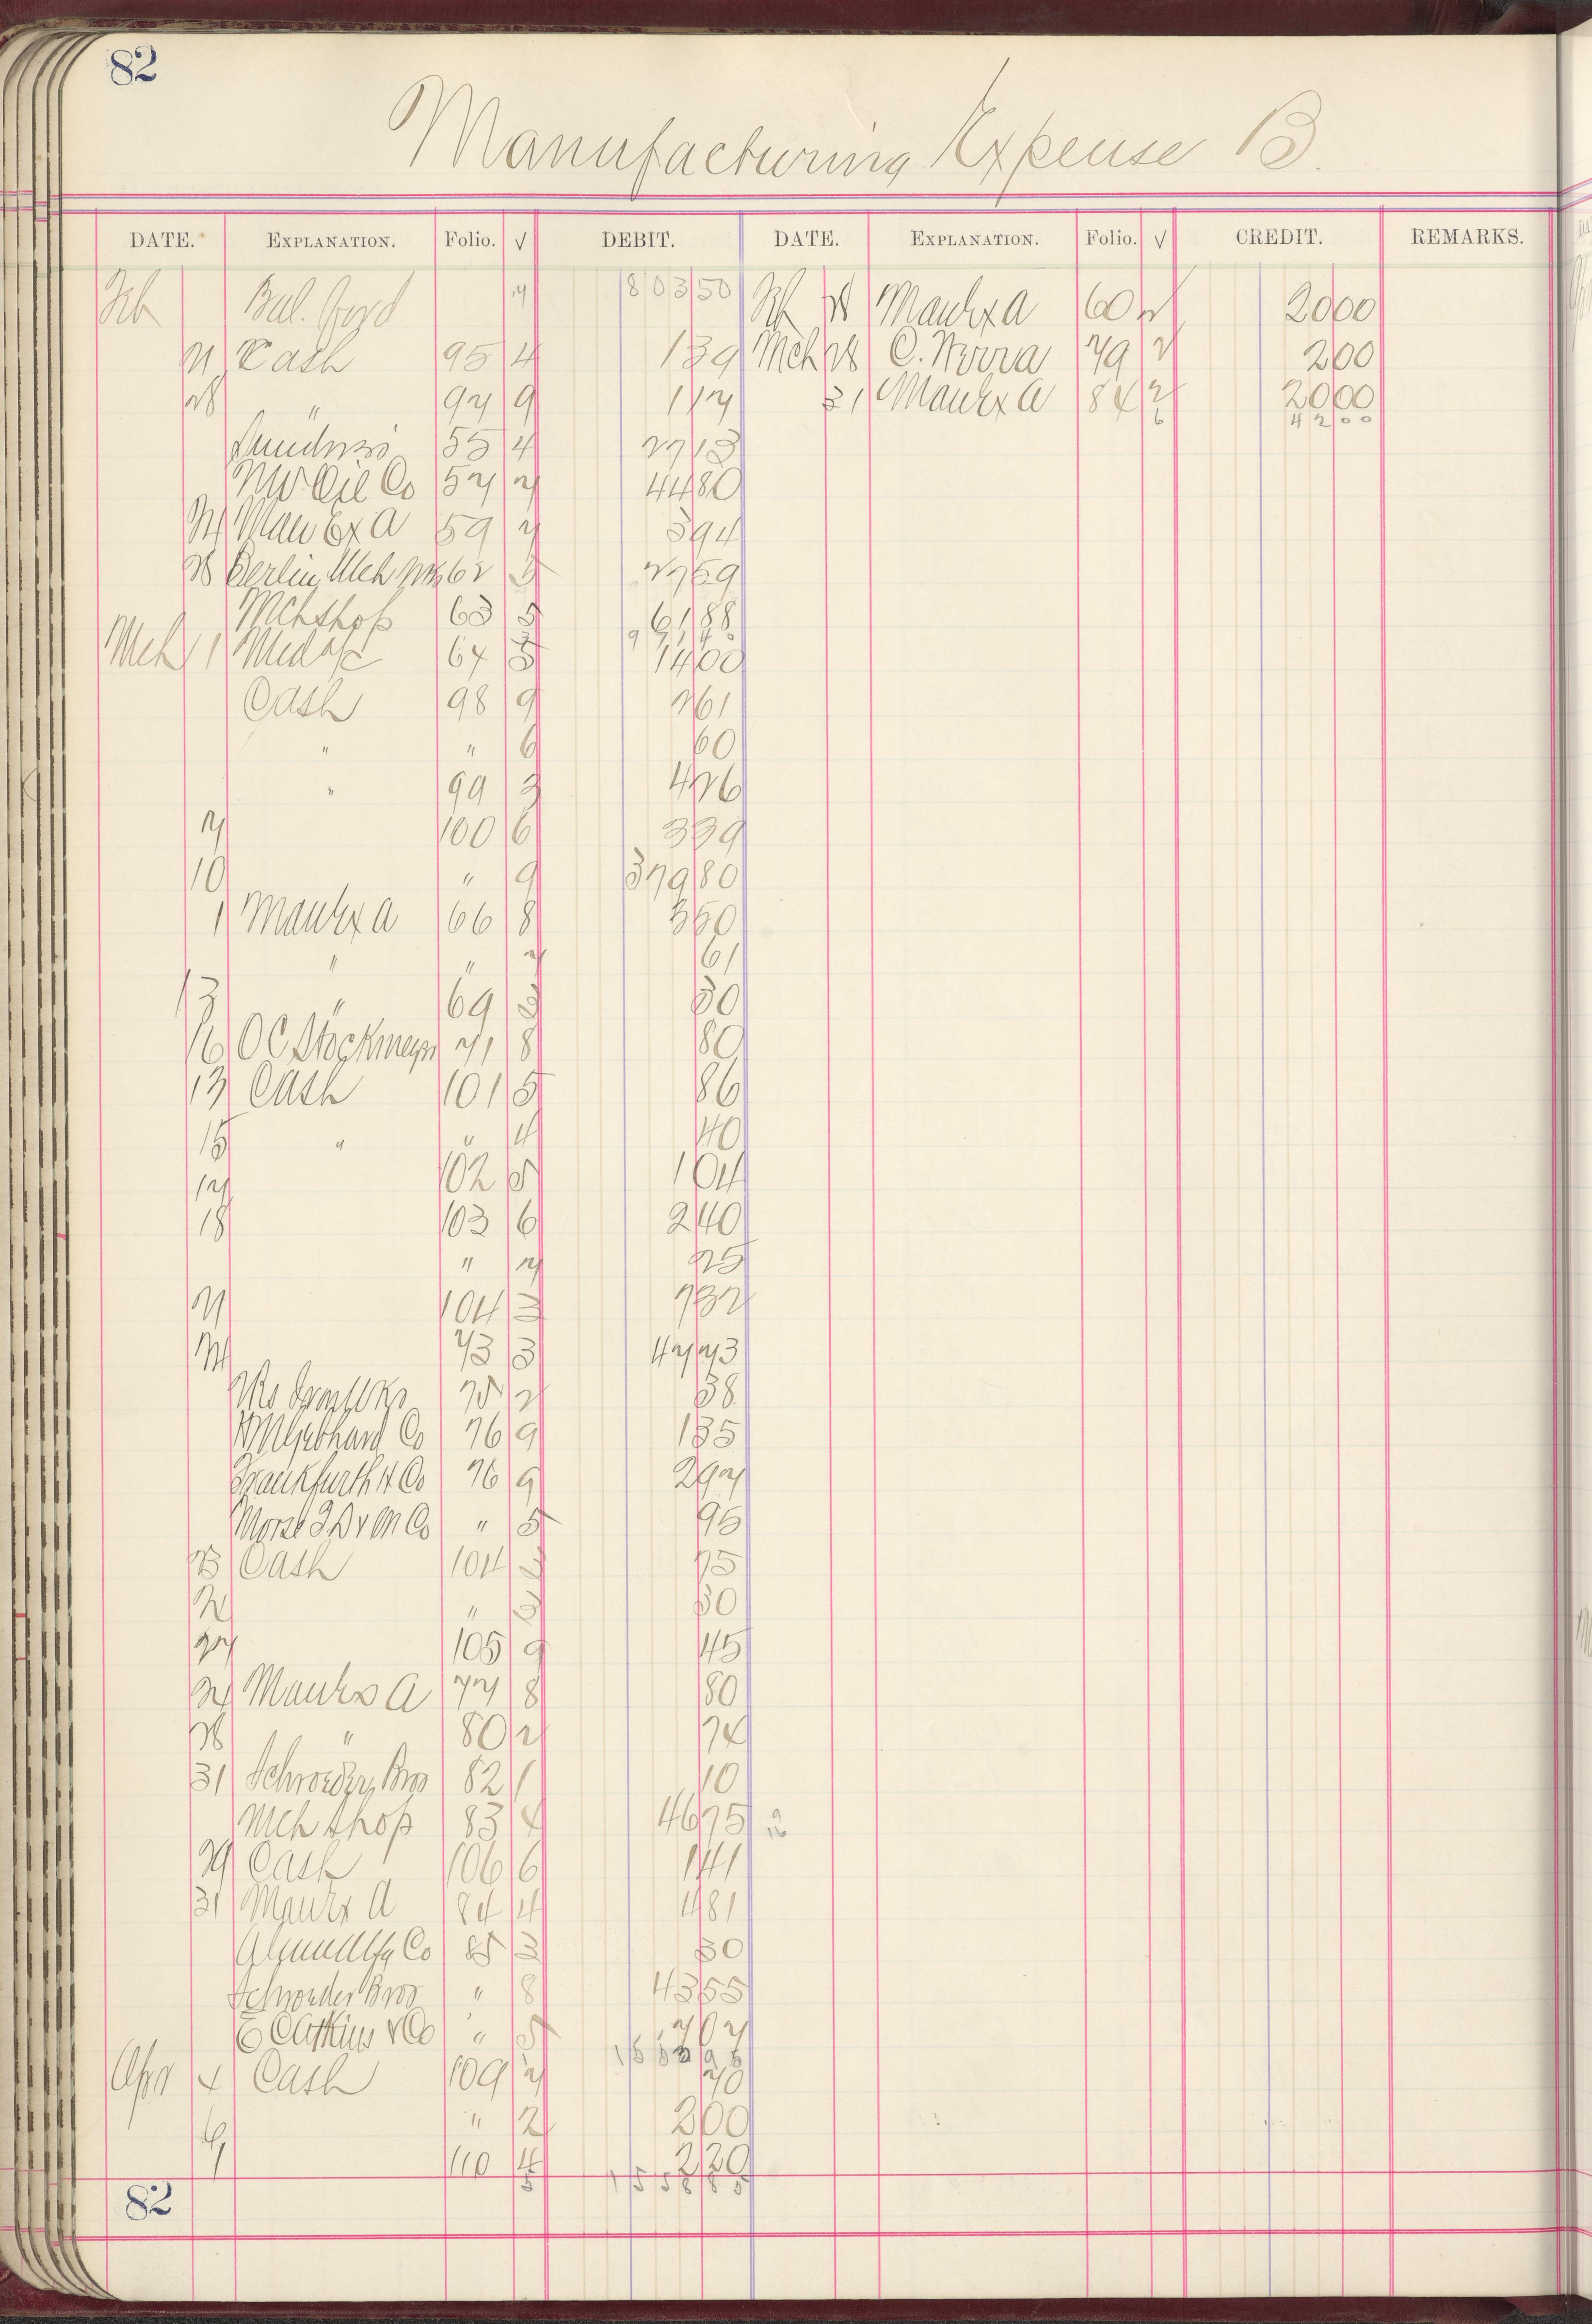 82
Manufacturing Expense B.
DATE. EXPLANATION. Folio. √ DEBIT. DATE. EXPLANATION. Folio. √ CREDIT. REMARKS.
Feb Bal. Ford 7 803 50 Feb 28 Man Ex A 60 2 20 00
21 Cash 95 4 1 39 Mch 28 79 2 2 00
28 " 97 9 1 17 31 Man Ex A 84 2 20 00
Sundries 55 4 27 13 42 00
NW Oil Co 57 7 44 80
24 Man Ex A 59 7 3 94
28 Berlin Mch Wks 62 5 27 69
Mch shop 63 5 61 88
Mch 1 Mdse 64 5 14 00
Cash 98 9 2 61
" " 6 60
" 99 3 4 26
7 100 6 3 39
10 " 9 379 80
1 Man Ex A 66 8 3 50
" " 7 61
13 " 69 3 30
16 O C Stockmeyer 71 8 80
13 Cash 101 5 86
15 " " 4 40
17 102 5 1 04
18 103 6 2 40
" 7 25
21 104 3 7 32
24 73 3 47 73
75 2 38
Gebhard Co 76 9 1 35
Frankfurth H Co 76 9 2 97
Morse T D & M Co " 5 95
23 Cash 104 3 75
" 3 30
27 105 9 45
24 Man Ex A 77 8 80
28 " 80 2 74
31 Schroeder Bros 82 1 10
Mch shop 83 4 46 75
29 Cash 106 6 1 41
31 Man Ex A 84 4 4 81
Co 85 3 30
Schroeder Bros " 8 43 55
E C Atkins & Co " 5 7 07
Apr 4 Cash 109 7 70
" 2 2 00
9 110 4 2 20
5 1558 85
82